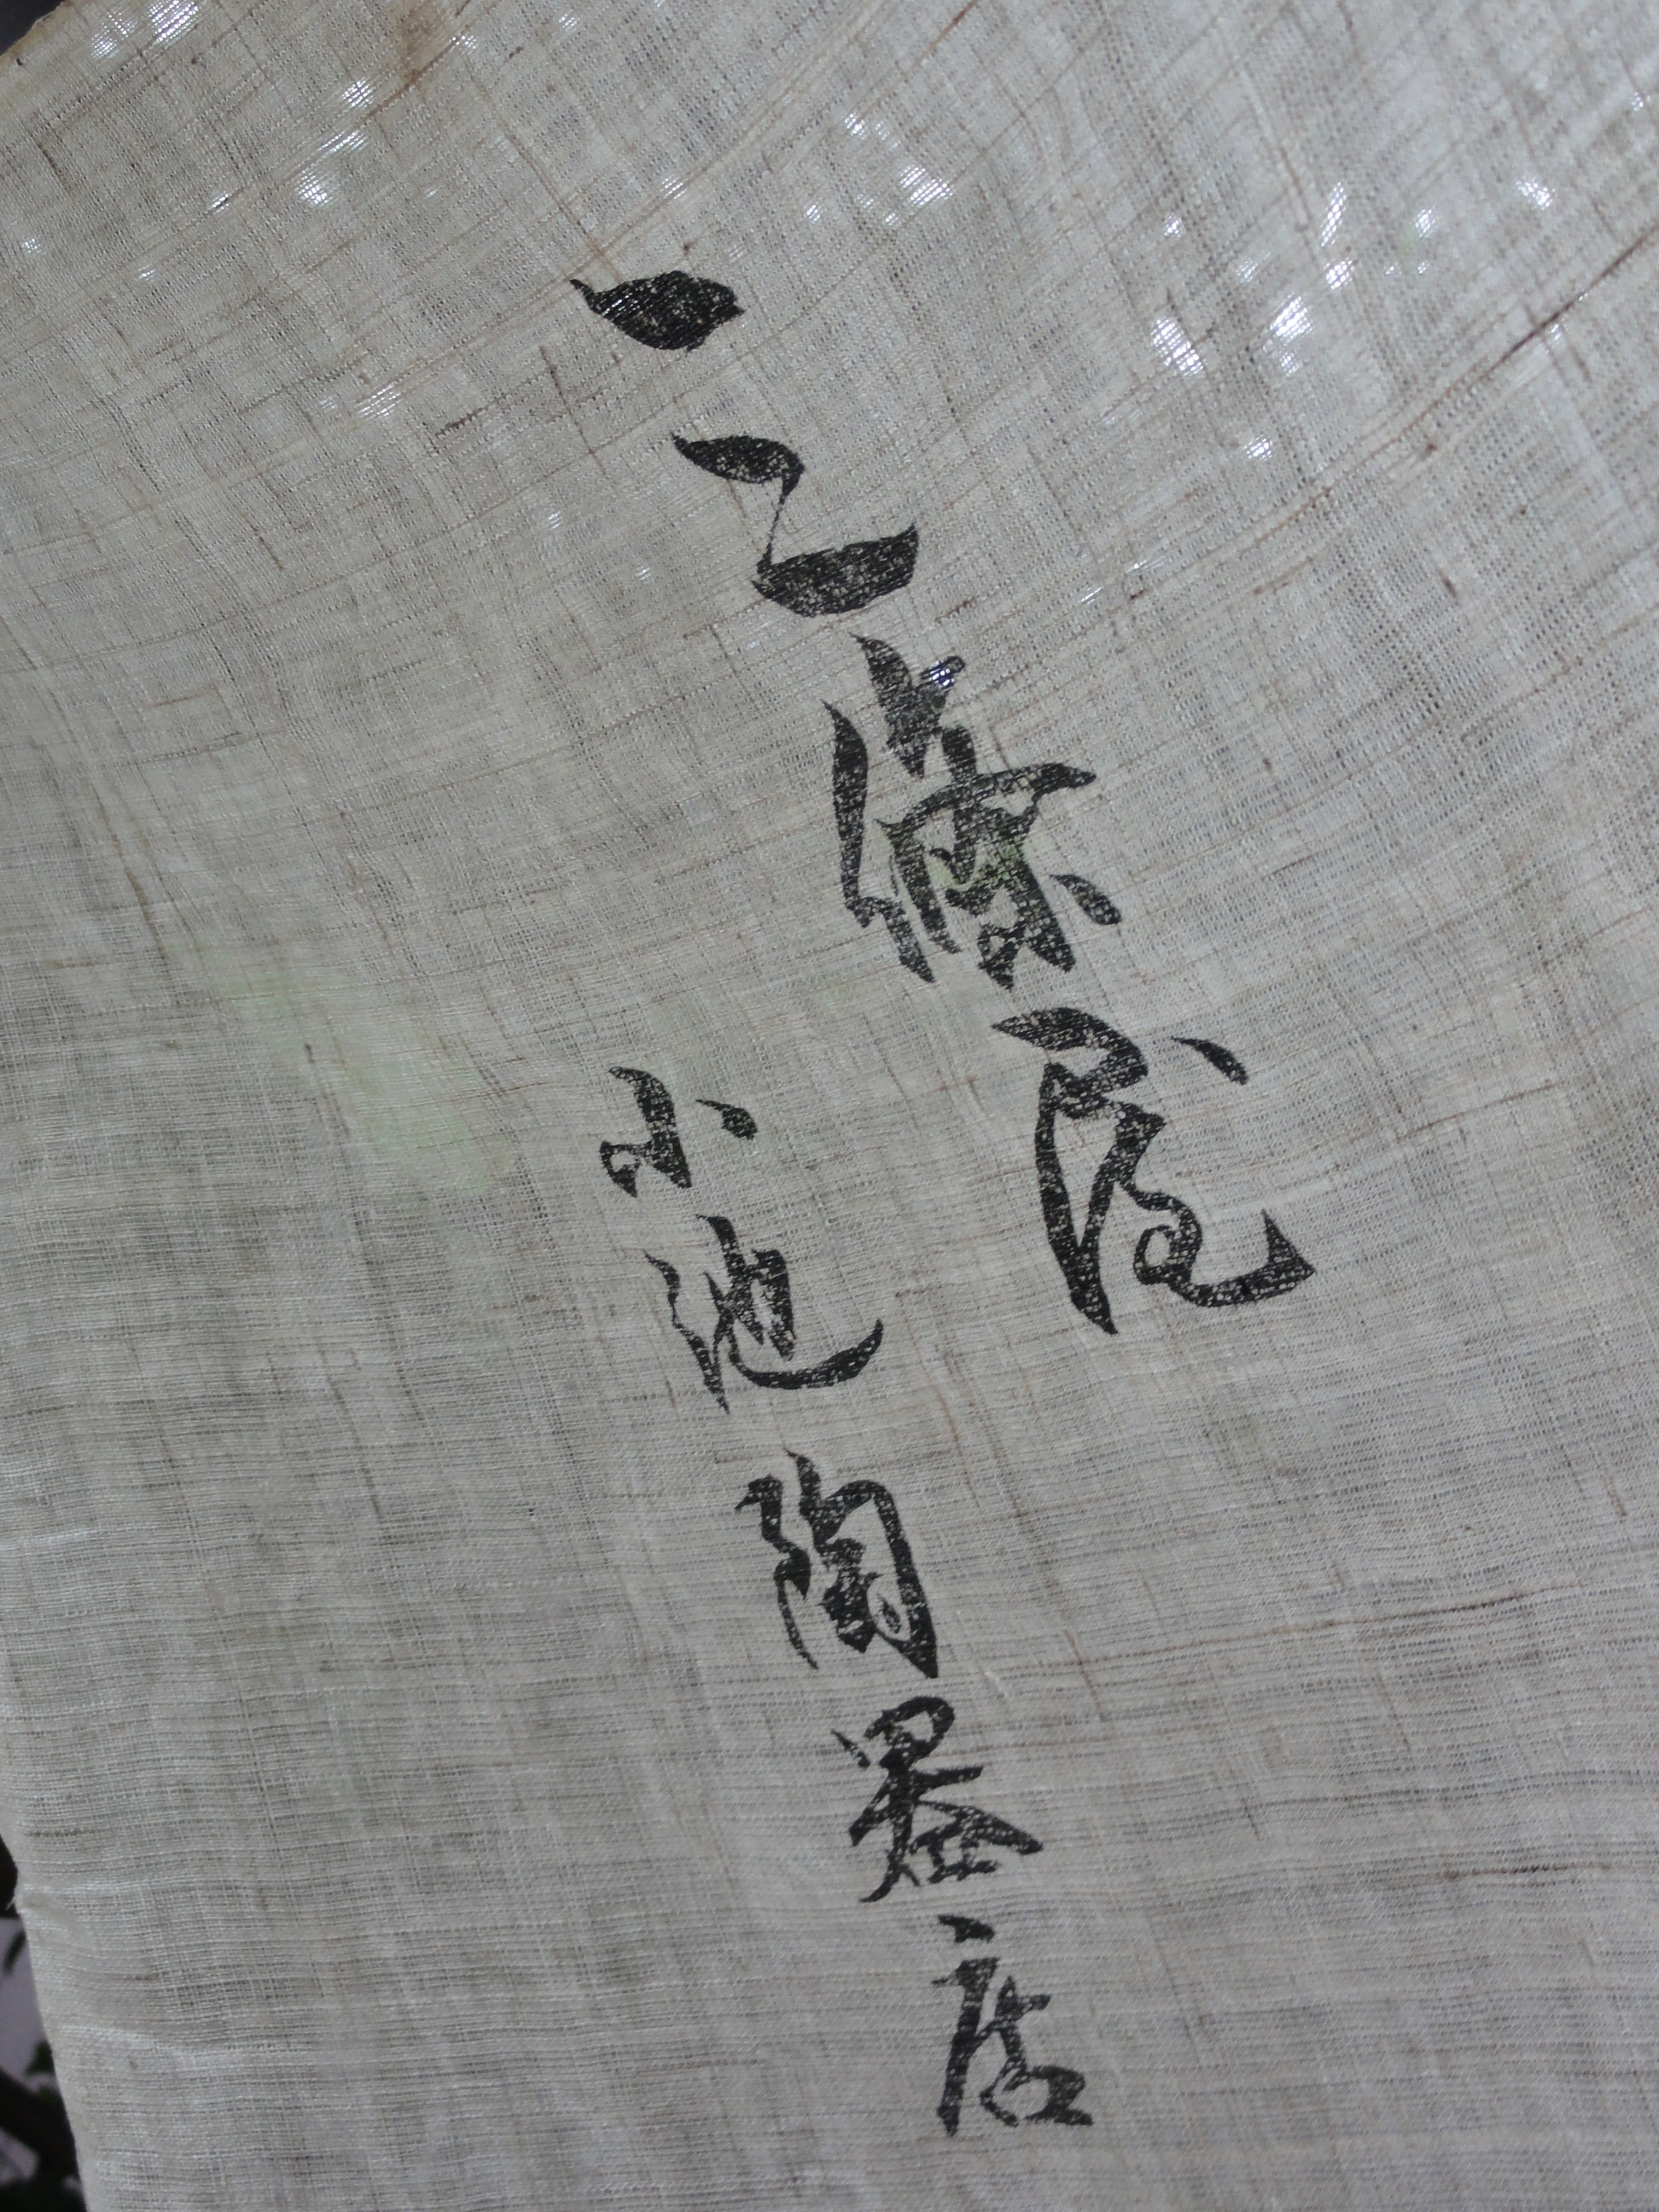 三條屋
小池陶器店